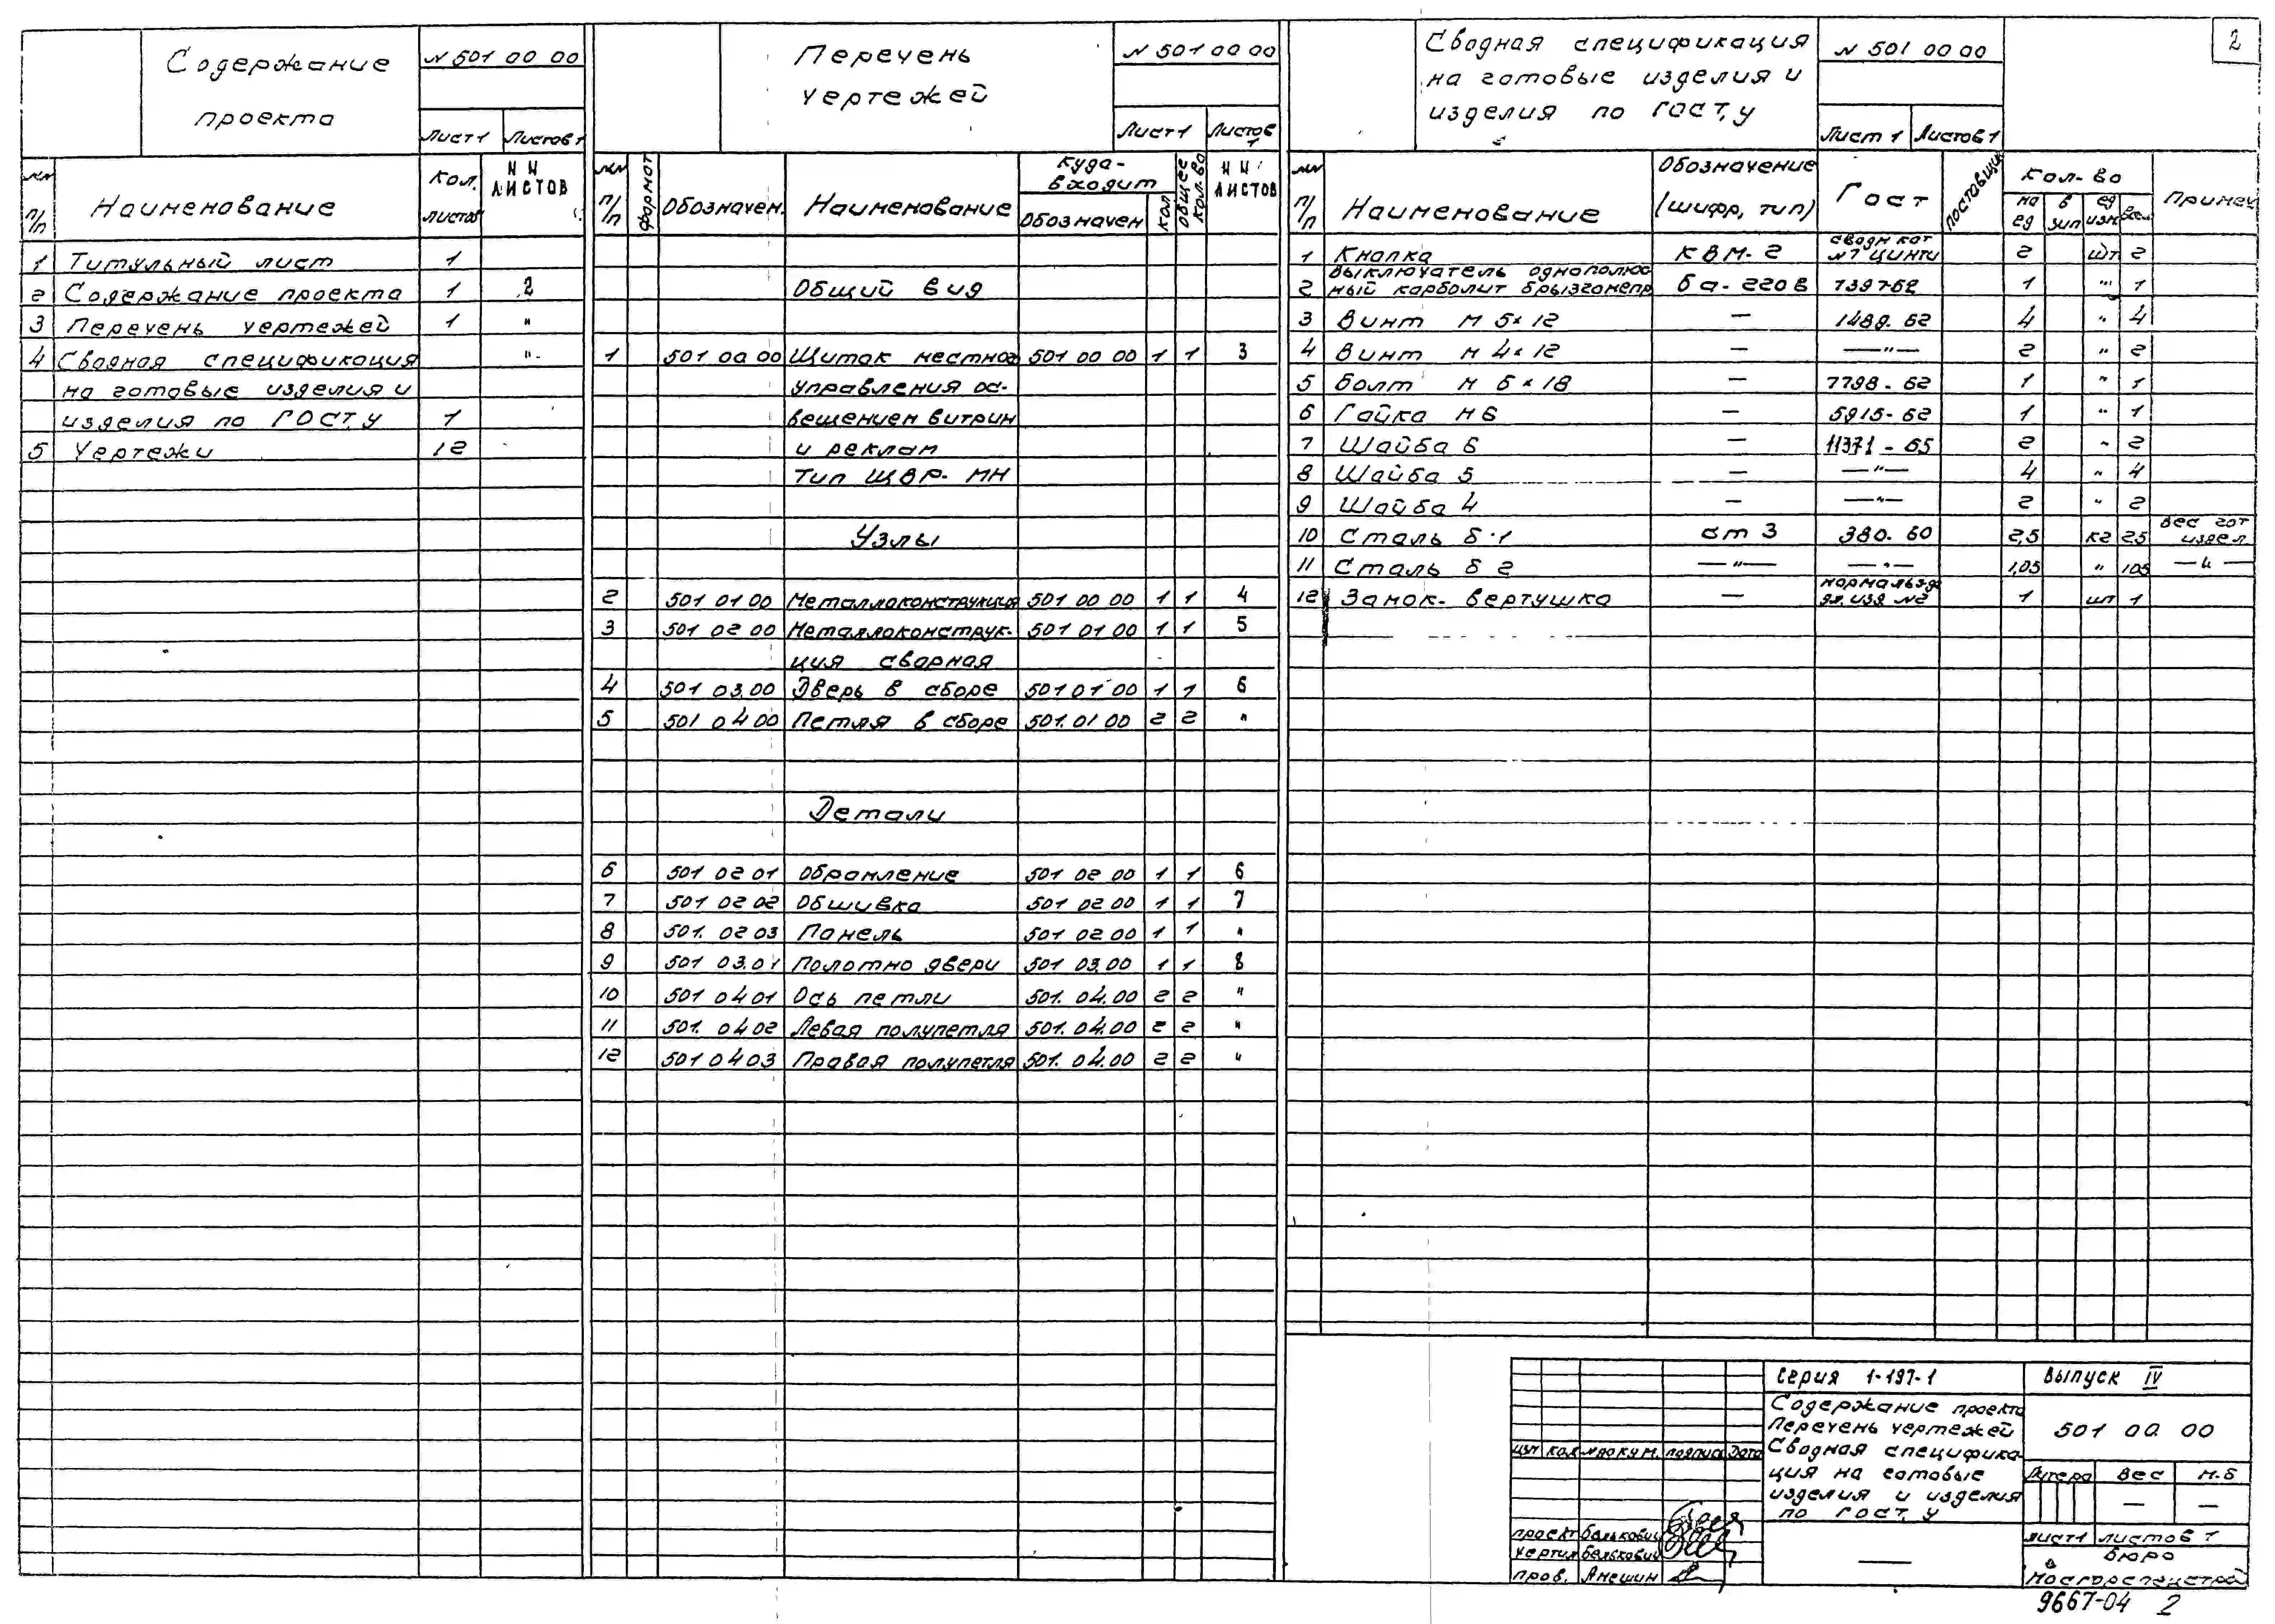 2
Содержание
проекта
N 501 00 00
Лист 1 Листов 1
NN п/п Наименование Кол. листов NN листов
1 Титульный лист 1
2 Содержание проекта 1 2
3 Перечень чертежей 1 "
4 Сводная спецификация "
на готовые изделия и
изделия по ГОСТ,у 1
5 Чертежи 12
Перечень
чертежей
N 501 00 00
Лист 1 Листов 1
NN п/п формат Обозначен. Наименование Куда входит Обозначен кол общее кол-во NN листов
Общий вид
1 501 00 00 Щиток местног 501 00 00 1 1 3
управления ос-
вещением витрин
и реклам
Тип ЩВР-МН
Узлы
2 501 01 00 Металлоконструкция 501 00 00 1 1 4
3 501 02 00 Металлоконструк- 501 01 00 1 1 5
ция сварная
4 501 03.00 Дверь в сборе 501 01 00 1 1 6
5 501 04 00 Петля в сборе 501.01 00 2 2 "
Детали
6 501 02 01 Обрамление 501 02 00 1 1 6
7 501 02 02 Обшивка 501 02 00 1 1 7
8 501. 02 03 Панель 501 02 00 1 1 "
9 501 03.01 Полотно двери 501 03.00 1 1 8
10 501 04 01 Ось петли 501. 04.00 2 2 "
11 501. 04 02 Левая полупетля 501. 04.00 2 2 "
12 501 04 03 Правая полупетля 501. 04.00 2 2 "
Сводная спецификация
на готовые изделия и
изделия по ГОСТ,у
N 501 00 00
Лист 1 Листов 1
NN п/п Наименование Обозначение (шифр, тип) Гост поставщик Кол-во на ед в зип ед изм Всег Примеч
1 Кнопка КВМ-2 сводн кат N7 ЦИНТИ 2 шт 2
2 Выключатель однополюс
ный карболит брызгонепр 6а-220в 7397-62 1 " 1
3 Винт М 5×12 — 1489-62 4 " 4
4 Винт М 4×12 — —"— 2 " 2
5 Болт М 6×18 — 7798-62 1 " 1
6 Гайка М6 — 5915-62 1 " 1
7 Шайба 6 — 11371-65 2 " 2
8 Шайба 5 — —"— 4 " 4
9 Шайба 4 — —"— 2 " 2
10 Сталь δ·1 ст 3 380-60 2,5 кг 2,5 вес гот издел
11 Сталь δ 2 —"— —"— 1,05 " 1,05 —"—
12 Замок-вертушка — 1 шт 1
Серия 1-197-1 Выпуск IV
Содержание проекта
Перечень чертежей
Сводная специфика-
ция на готовые
изделия и изделия
по ГОСТ,у
501 00 00
изм кол N докум. подпись Дата
Литера Вес М-б
— —
лист 1 листов 1
проект Балькович
чертил Балькович
пров. Анешин
—
бюро
Мосгорспецстрой
9667-04 2